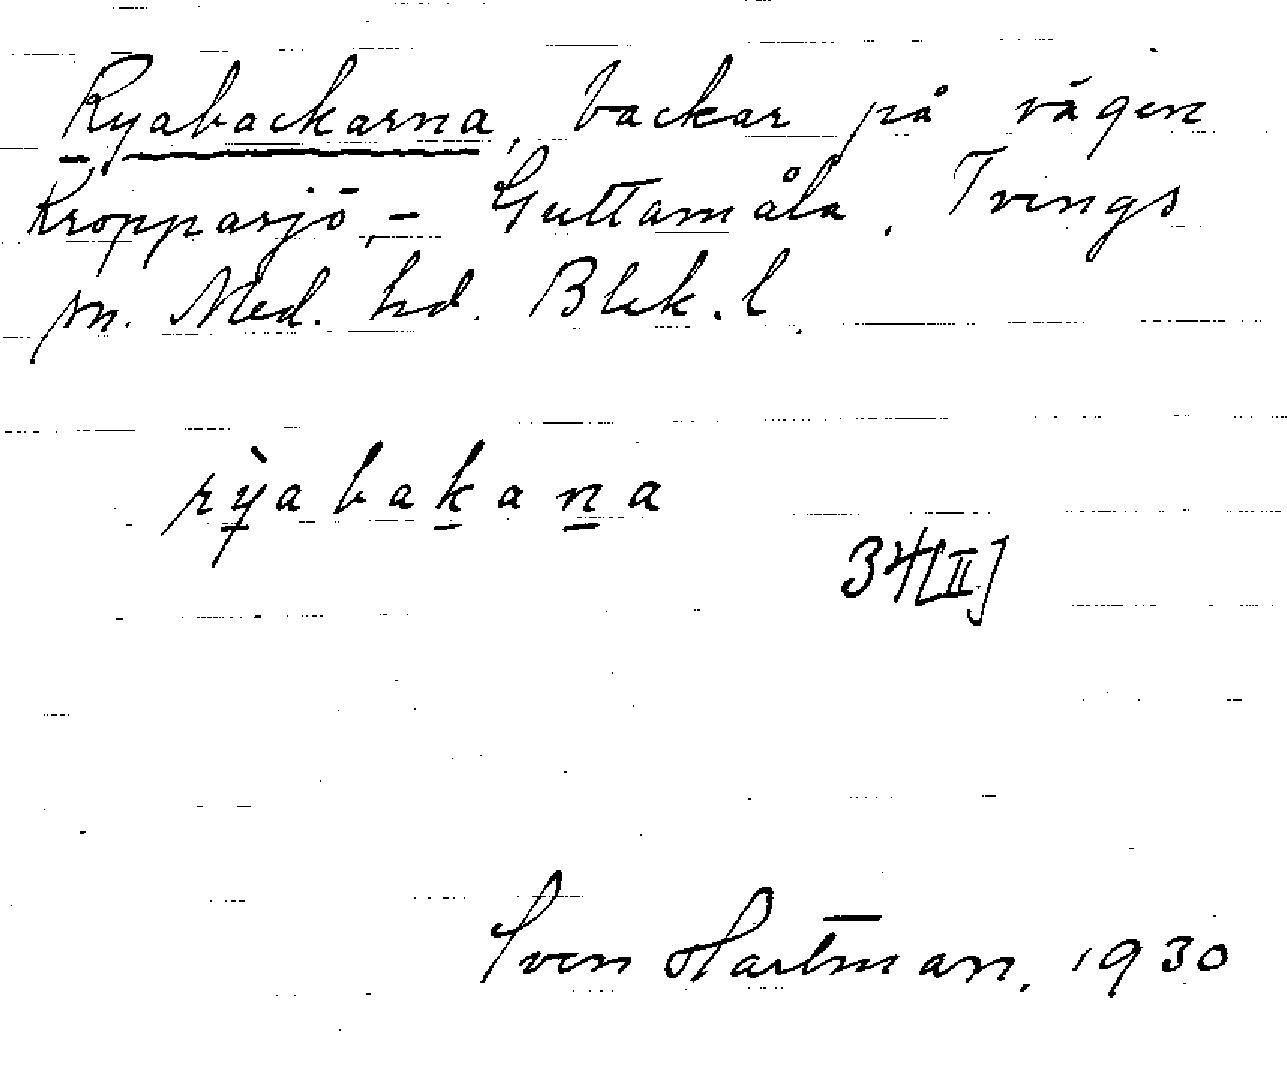 Ryabackarna, backar på vägen
Kroppasjö, - Guttamåla, Tvings
sn. Med. hd. Blek. l.
rỳabakana
34[II]
Sven Hartman, 1930